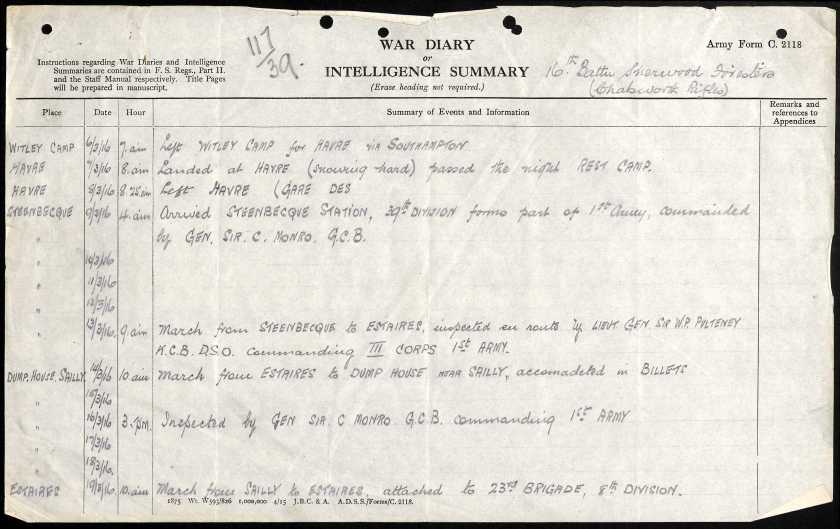 117/39.
WAR DIARY
or
INTELLIGENCE SUMMARY
(Erase heading not required.)
Army Form C. 2118
Instructions regarding War Diaries and Intelligence
Summaries are contained in F. S. Regs., Part II.
and the Staff Manual respectively. Title Pages
will be prepared in manuscript.
16th Battn Sherwood Foresters
(Chatsworth Rifles)
Place Date Hour Summary of Events and Information Remarks and references to Appendices
WITLEY CAMP 6/3/16 7. am Left WITLEY CAMP for HAVRE via SOUTHAMPTON
HAVRE 7/3/16 8. am Landed at HAVRE (snowing hard) passed the night REST CAMP.
HAVRE 8/3/16 8.25 am Left HAVRE (GARE DES
STEENBECQUE 9/3/16 4. am Arrived STEENBECQUE STATION, 39th DIVISION forms part of 1st Army, commanded
by GEN. SIR. C. MONRO. G.C.B.
" 10/3/16
" 11/3/16
" 12/3/16
" 13/3/16. 9 am March from STEENBECQUE to ESTAIRES, inspected en route by LIEUT GEN. SIR W.P. PULTENEY
K.C.B. D.S.O. commanding III CORPS 1st ARMY.
DUMP. HOUSE. SAILLY. 14/3/16 10 am March from ESTAIRES to DUMP HOUSE NEAR SAILLY, accomadeted in BILLETS
" 15/3/16
" 16/3/16 3. pm. Inspected by GEN SIR. C MONRO. G.C.B. commanding 1st ARMY
" 17/3/16
" 18/3/16.
ESTAIRES 19/3/16 10. am March from SAILLY to ESTAIRES, attached to 23rd BRIGADE, 8th DIVISION.
1875 Wt. W593/826 1,000,000 4/15 J.B.C. & A. A.D.S.S./Forms/C. 2118.